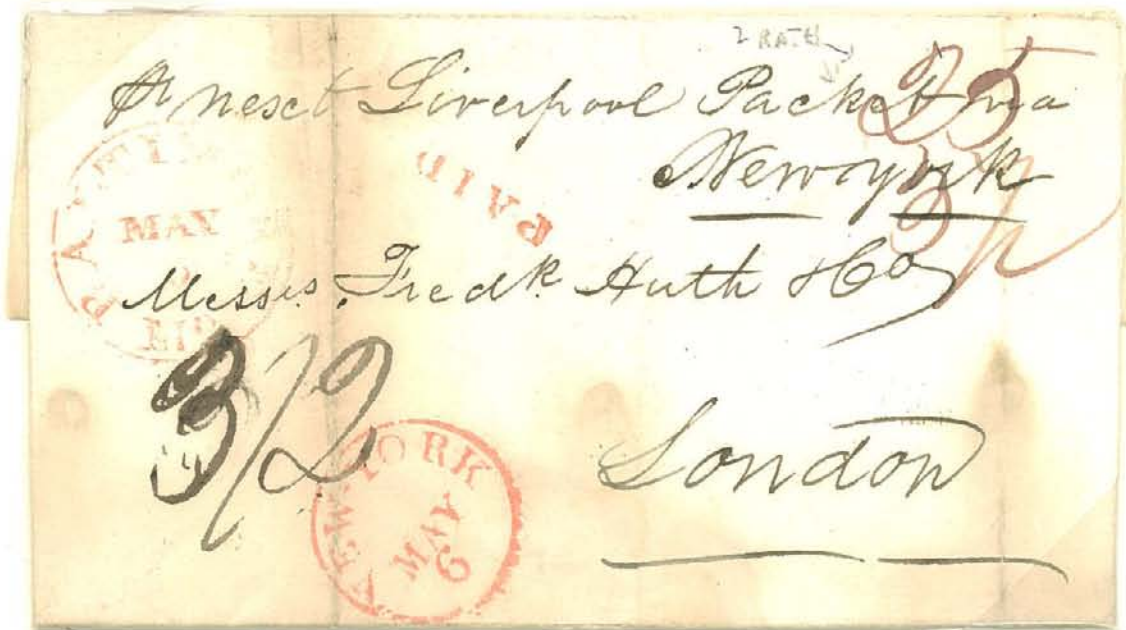 2 RATE
pr next Liverpool Packet via
25
Newyork
PAID
MAY
MD
Messrs. Fredk Huth & Co
3/2
NEW-YORK
MAY
6
London